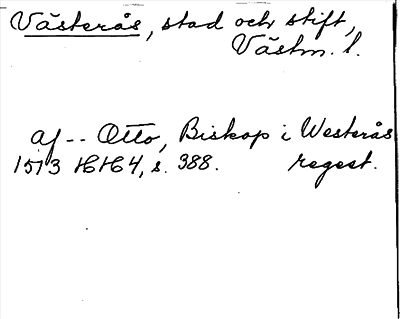 Västerås, stad och stift,
Västm. l.
af -- Otto, Biskop i Westerås
1513 HH 4, s. 388. regest.